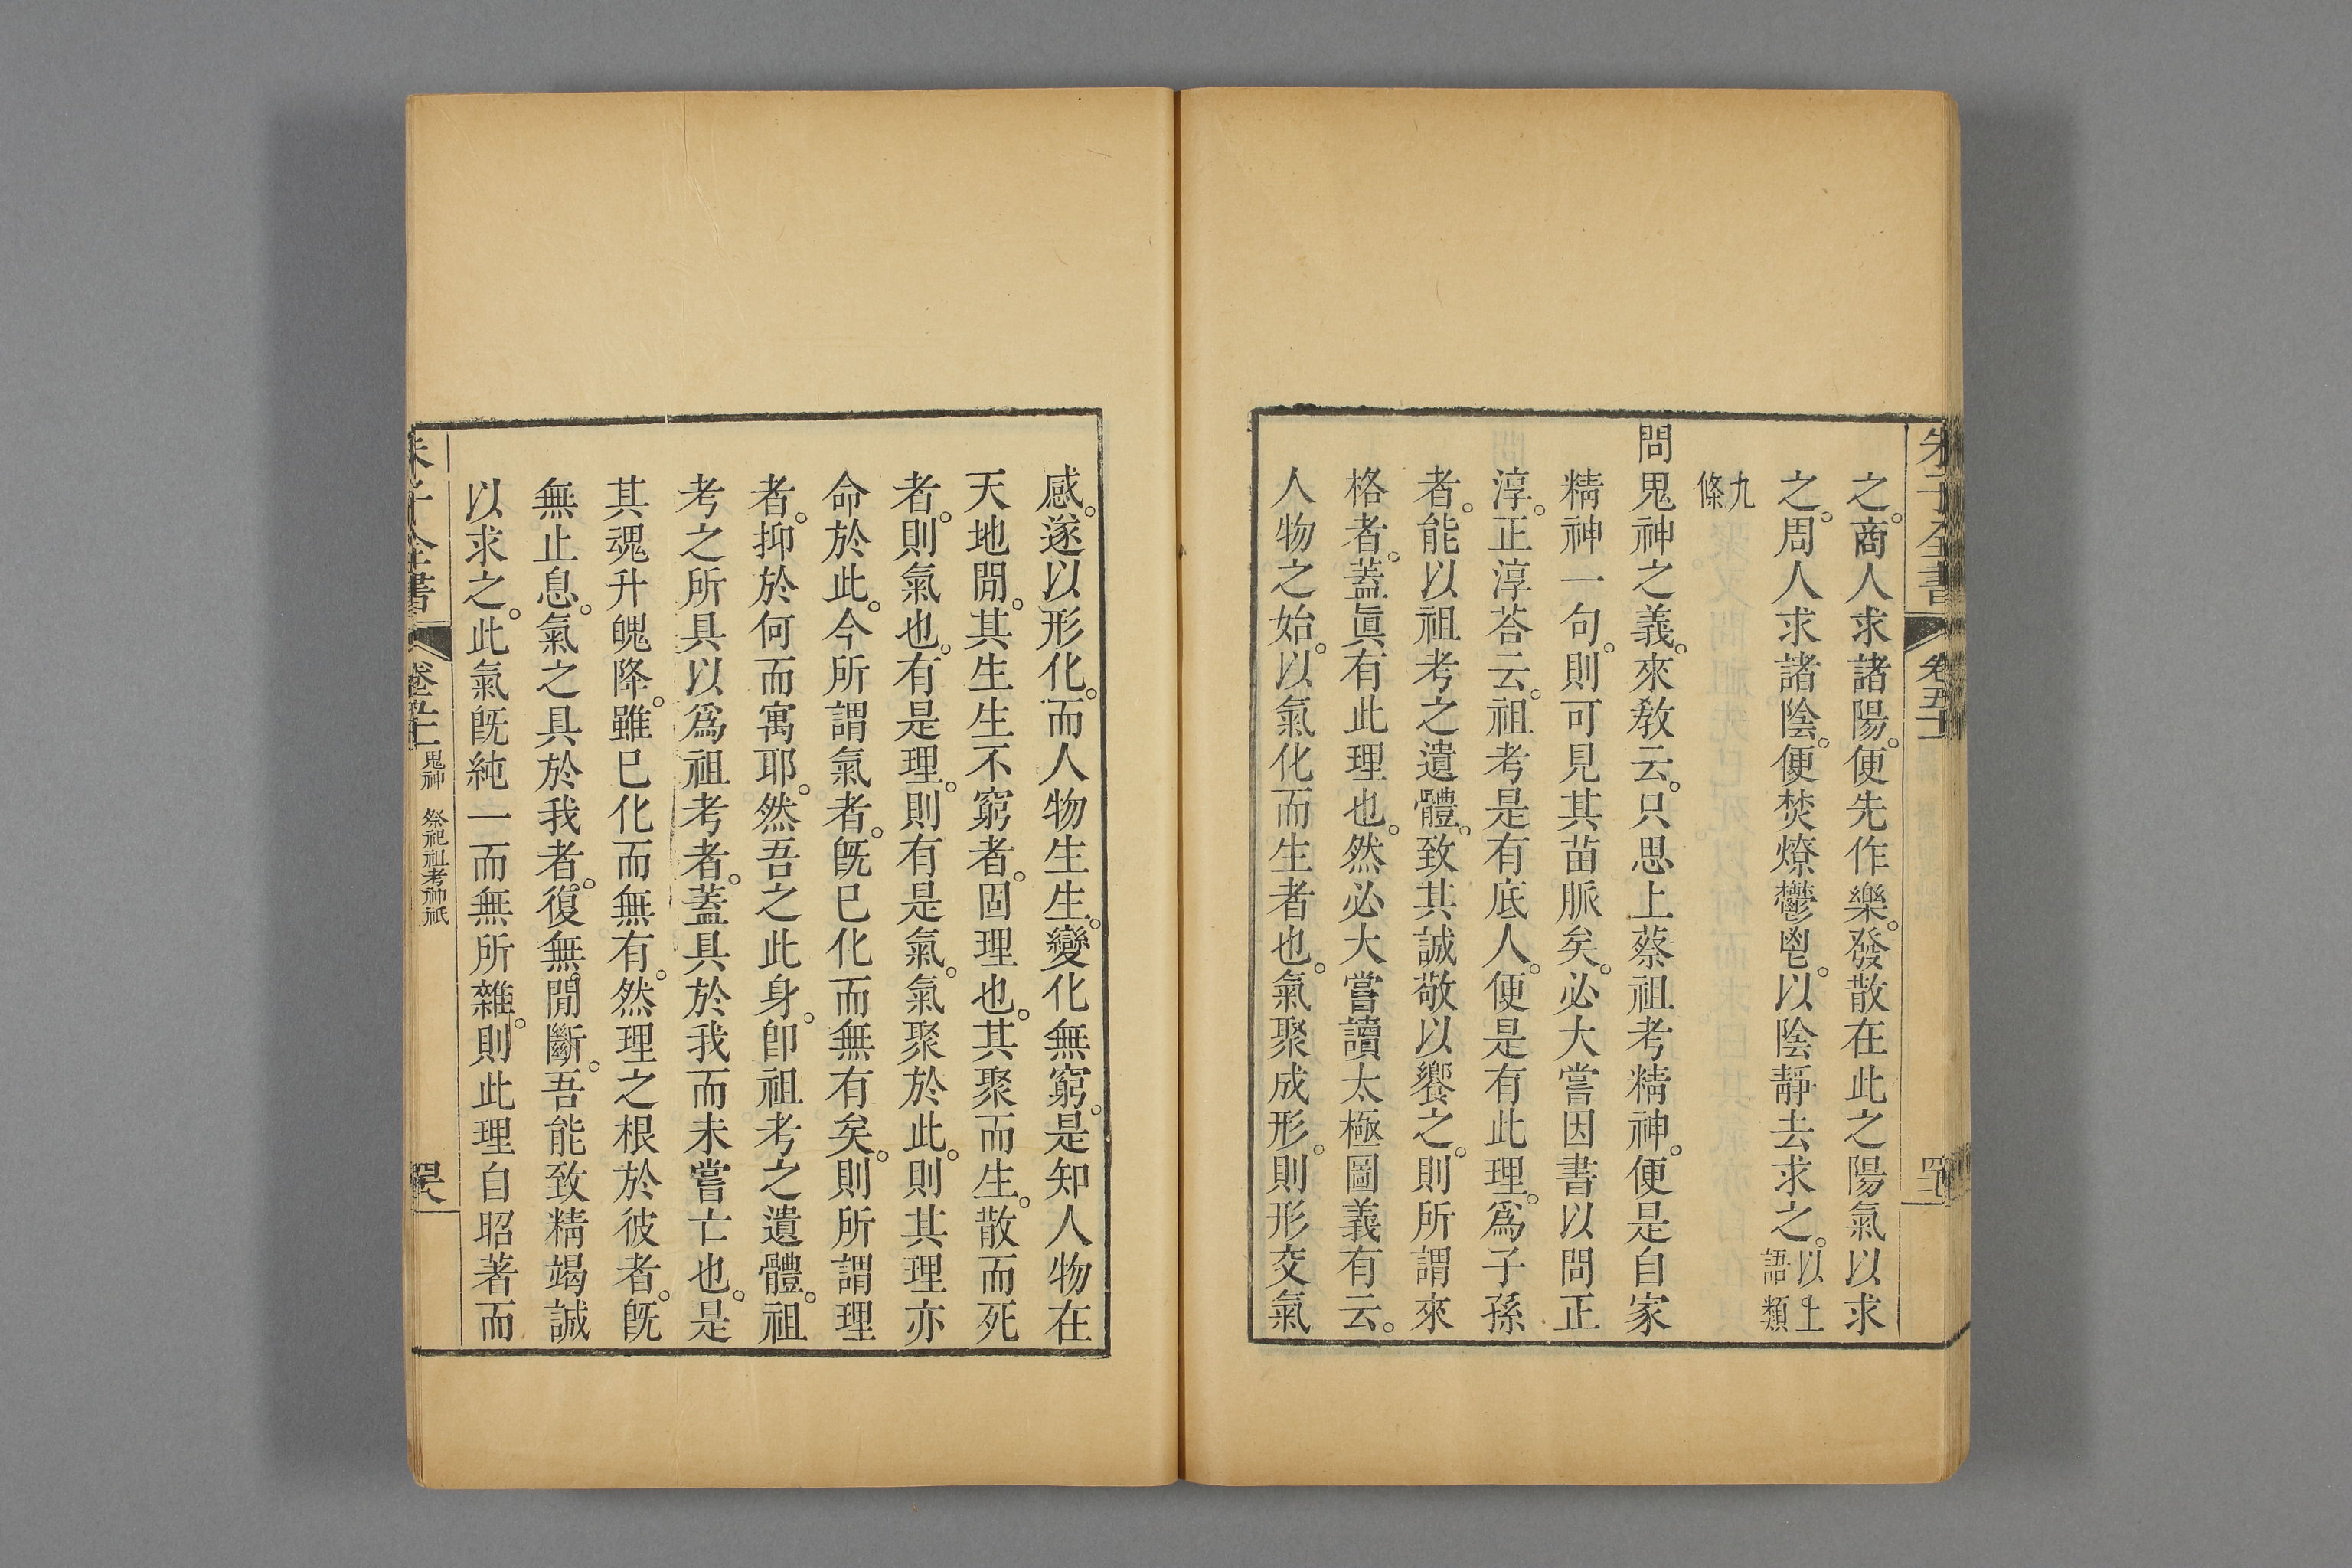 朱子全書 卷五十一
之。商人求諸陽。便先作樂。發散在此之陽氣以求
之。周人求諸陰。便焚燎鬱鬯。以陰靜去求之。以上語類
九條
問鬼神之義。來教云。只思上蔡祖考精神。便是自家
精神一句。則可見其苗脈矣。必大嘗因書以問正
淳。正淳荅云。祖考是有底人。便是有此理。爲子孫
者。能以祖考之遺體。致其誠敬以饗之。則所謂來
格者。蓋眞有此理也。然必大嘗讀太極圖義有云。
人物之始。以氣化而生者也。氣聚成形。則形交氣
感。遂以形化。而人物生生。變化無窮。是知人物在
天地閒。其生生不窮者。固理也。其聚而生。散而死
者。則氣也。有是理。則有是氣。氣聚於此。則其理亦
命於此。今所謂氣者。旣已化而無有矣。則所謂理
者。抑於何而寓耶。然吾之此身。卽祖考之遺體。祖
考之所具以爲祖考者。蓋具於我而未嘗亡也。是
其魂升魄降。雖已化而無有。然理之根於彼者。旣
無止息。氣之具於我者。復無閒斷。吾能致精竭誠
以求之。此氣旣純一而無所雜。則此理自昭著而
朱子全書 卷五十一 鬼神 祭祀祖考神祇